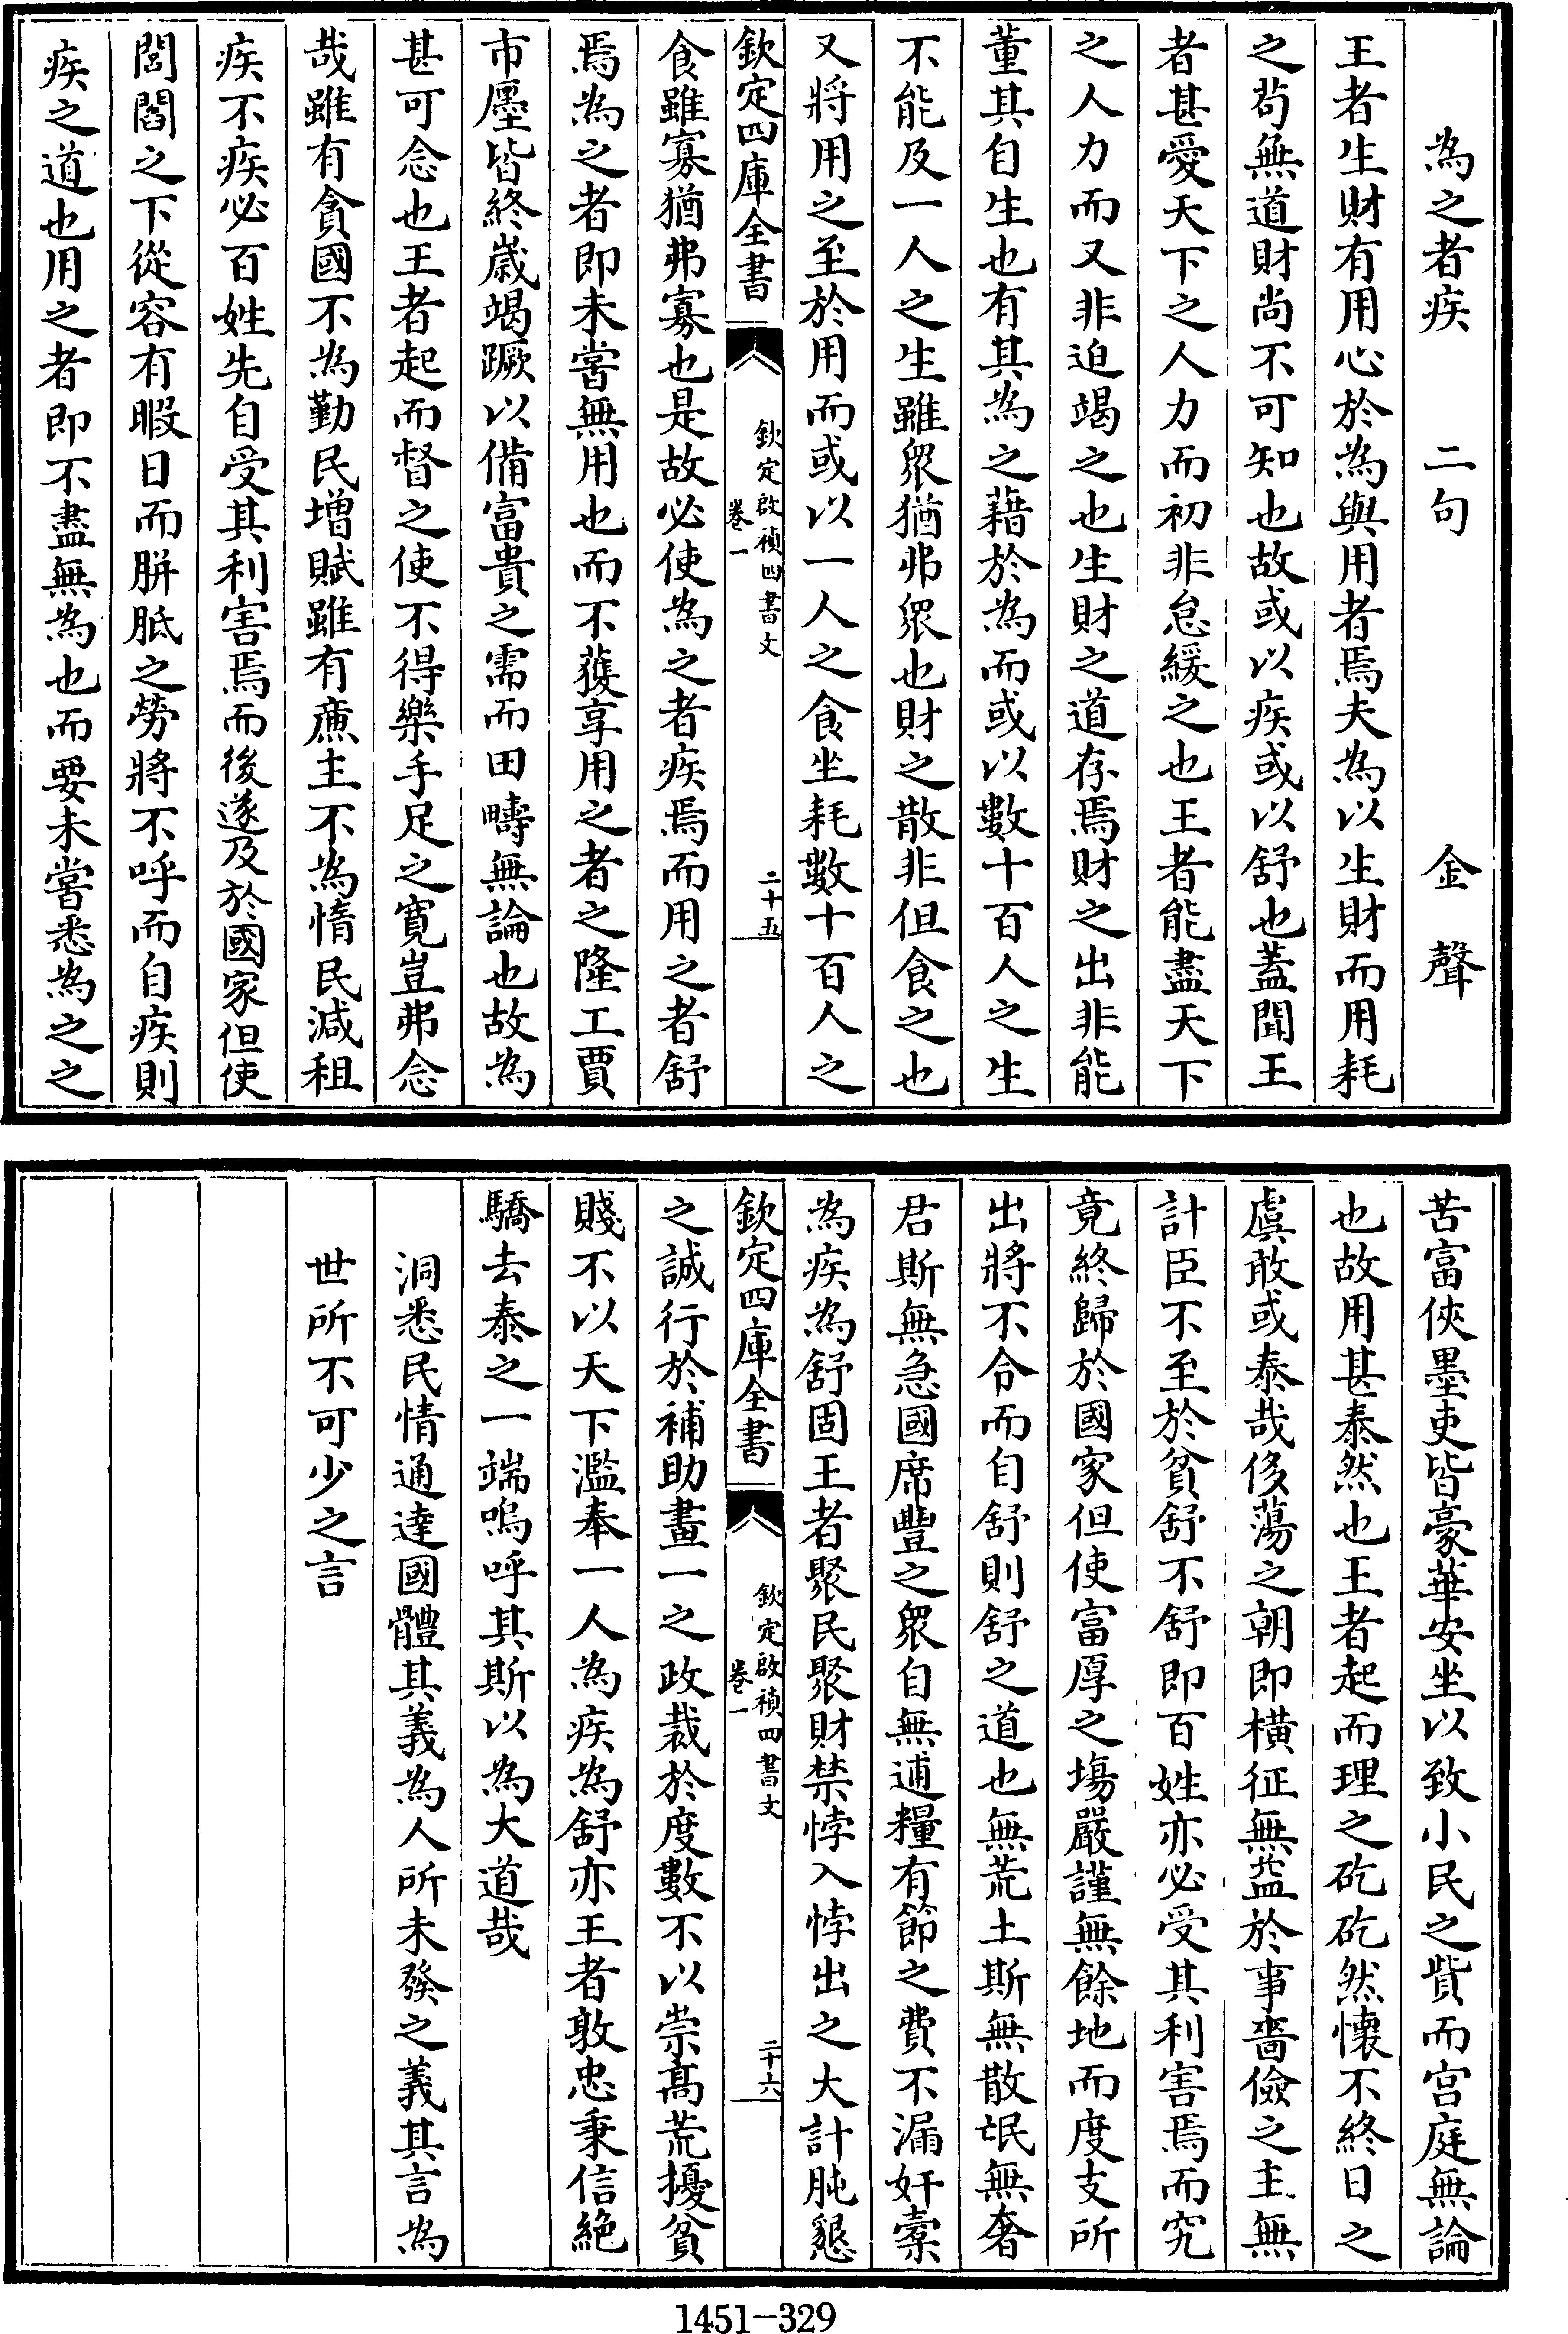 為之者疾　二句　金聲
王者生財有用心於為與用者焉夫為以生財而用耗
之苟無道財尚不可知也故或以疾或以舒也蓋聞王
者甚愛天下之人力而初非怠緩之也王者能盡天下
之人力而又非迫竭之也生財之道存焉財之出非能
董其自生也有其為之藉於為而或以數十百人之生
不能及一人之生雖衆猶弗衆也財之散非但食之也
又將用之至於用而或以一人之食坐耗數十百人之
欽定四庫全書
欽定啟禎四書文
卷一
二十五
食雖寡猶弗寡也是故必使為之者疾焉而用之者舒
焉為之者即未嘗無用也而不獲享用之者之隆工賈
市廛皆終歲竭蹶以備富貴之需而田疇無論也故為
甚可念也王者起而督之使不得樂手足之寬豈弗念
哉雖有貪國不為勤民增賦雖有亷主不為惰民減租
疾不疾必百姓先自受其利害焉而後遂及於國家但使
閭閻之下從容有暇日而胼胝之勞將不呼而自疾則
疾之道也用之者即不盡無為也而要未嘗悉為之之
苦富俠墨吏皆豪華安坐以致小民之貲而宮庭無論
也故用甚泰然也王者起而理之矻矻然懷不終日之
虞敢或泰哉侈蕩之朝即橫征無益於事嗇儉之主無
計臣不至於貧舒不舒即百姓亦必受其利害焉而究
竟終歸於國家但使富厚之塲嚴謹無餘地而度支所
出將不令而自舒則舒之道也無荒土斯無散氓無奢
君斯無急國席豐之衆自無逋糧有節之費不漏奸橐
為疾為舒固王者聚民聚財禁悖入悖出之大計肫懇
欽定四庫全書
欽定啟禎四書文
卷一
二十六
之誠行於補助畫一之政裁於度數不以崇高荒擾貧
賤不以天下濫奉一人為疾為舒亦王者敦忠秉信絶
驕去泰之一端嗚呼其斯以為大道哉
洞悉民情通達國體其義為人所未發之義其言為
世所不可少之言
1451-329